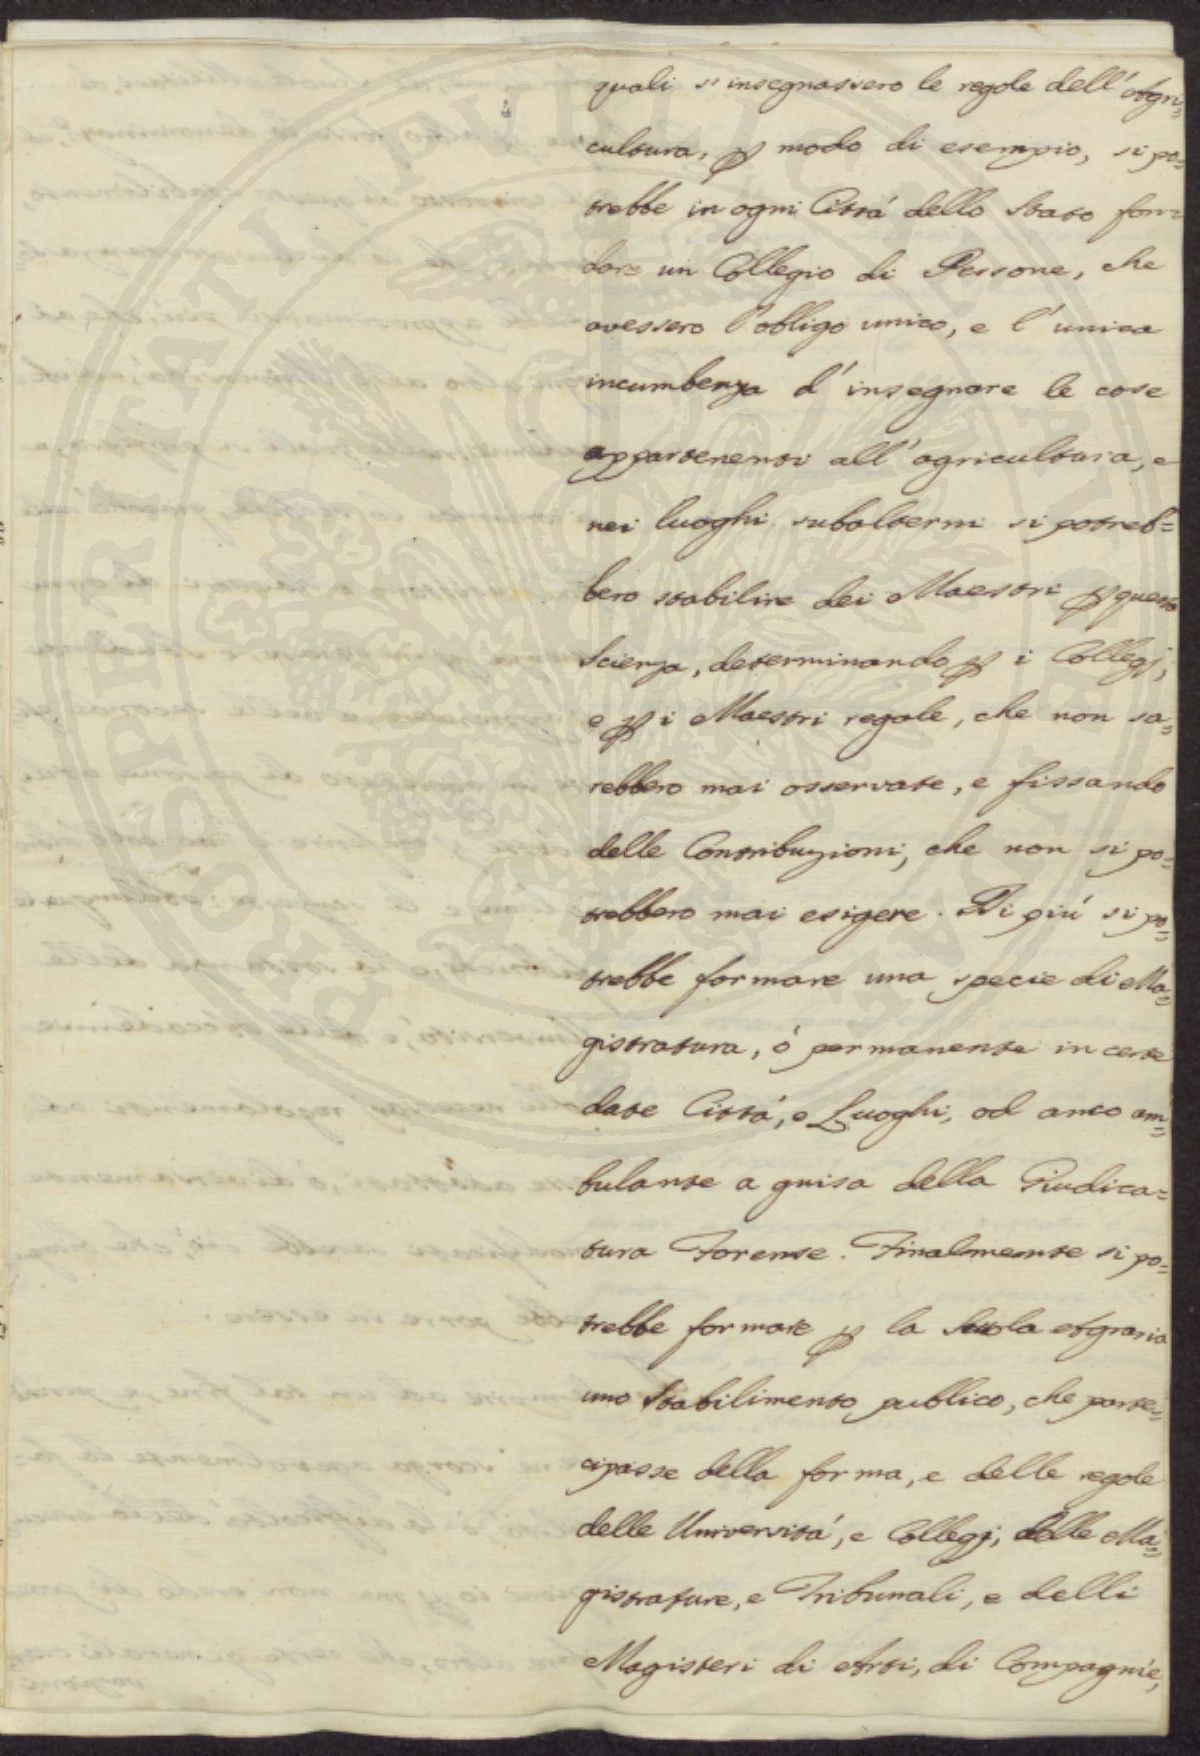 quali s'insegnassero le regole dell'Agri=
cultura, ꝑ modo di esempio, si po=
trebbe in ogni Cittá dello Stato fon=
dare un Collegio di Persone, che
avessero l'obligo unico, e l'unica
incumbenza d'insegnare le cose
appartenenti all'agricultura, e
nei luoghi subalterni si potreb=
bero stabilire dei Maestri ꝑ questa
Scienza, determinando ꝑ i Collegj,
e ꝑ i Maestri regole, che non sa=
rebbero mai osservate, e fissando
delle Contribuzioni, che non si po=
trebbero mai esigere. Di piú si po=
trebbe formare una specie di Ma=
gistratura, ó permanente in certe
date Cittá, e Luoghi, od anco am=
bulante a guisa della Giudica=
tura Forense. Finalmente si po=
trebbe formare ꝑ la Scuola Agraria
uno Stabilimento publico, che parte=
cipasse della forma, e delle regole
delle Universitá, e Collegj, delle Ma=
gistrature, e Tribunali, e delli
Magisteri di Arti, di Compagnie,
PROSPERITATI PUBLICAE